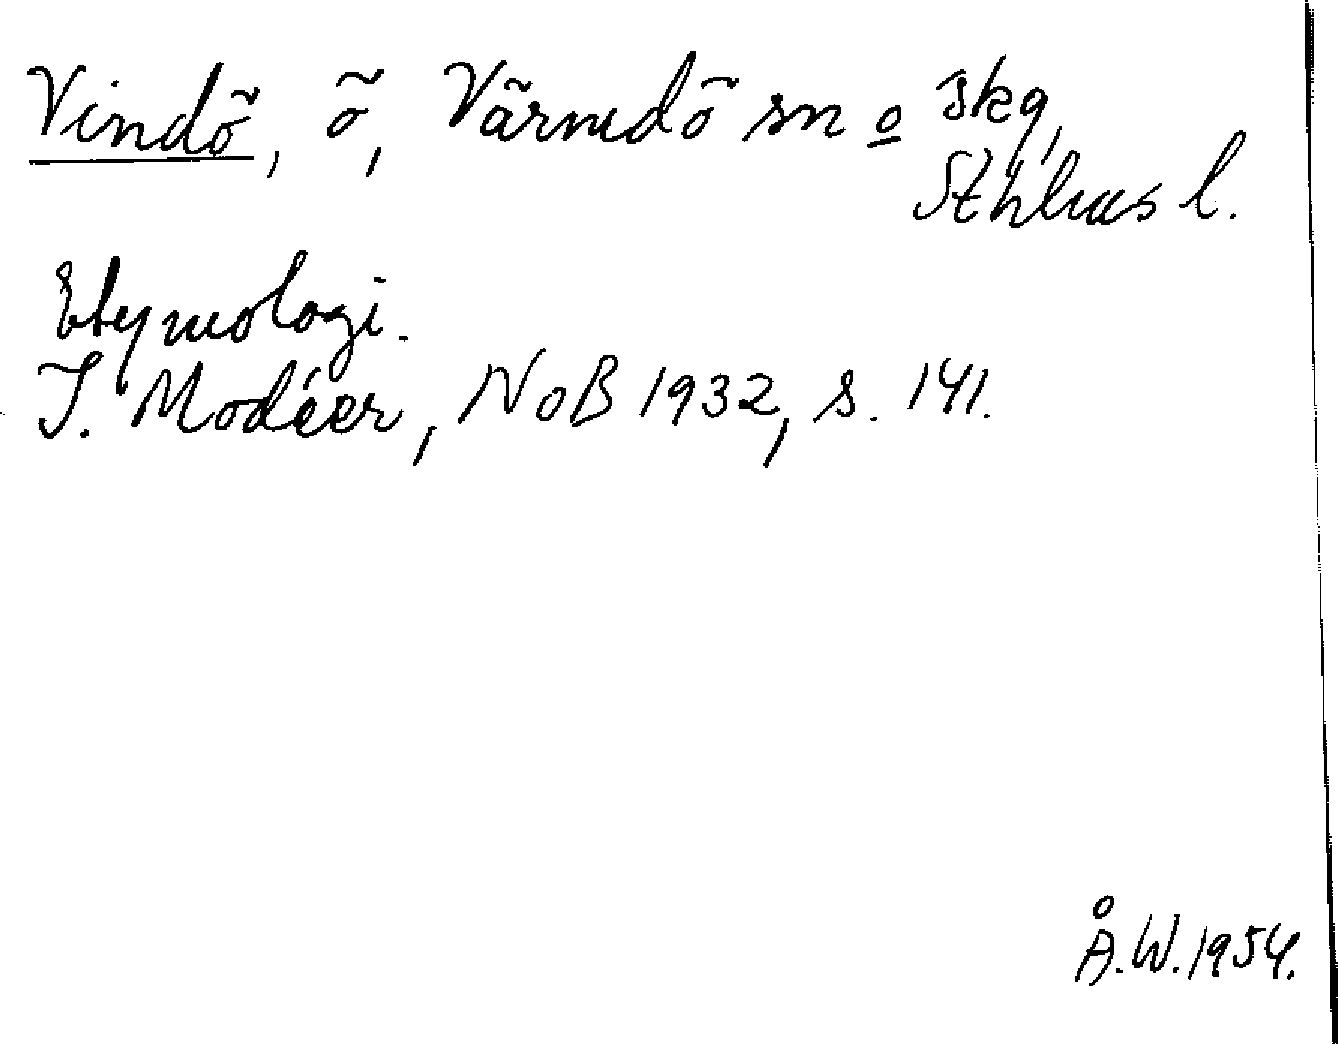 Vindö, ö, Värmdö sn o skg,
Sthlms l.
Etymologi.
I. Modéer, NoB 1932, s. 141.
Å.W. 1954.